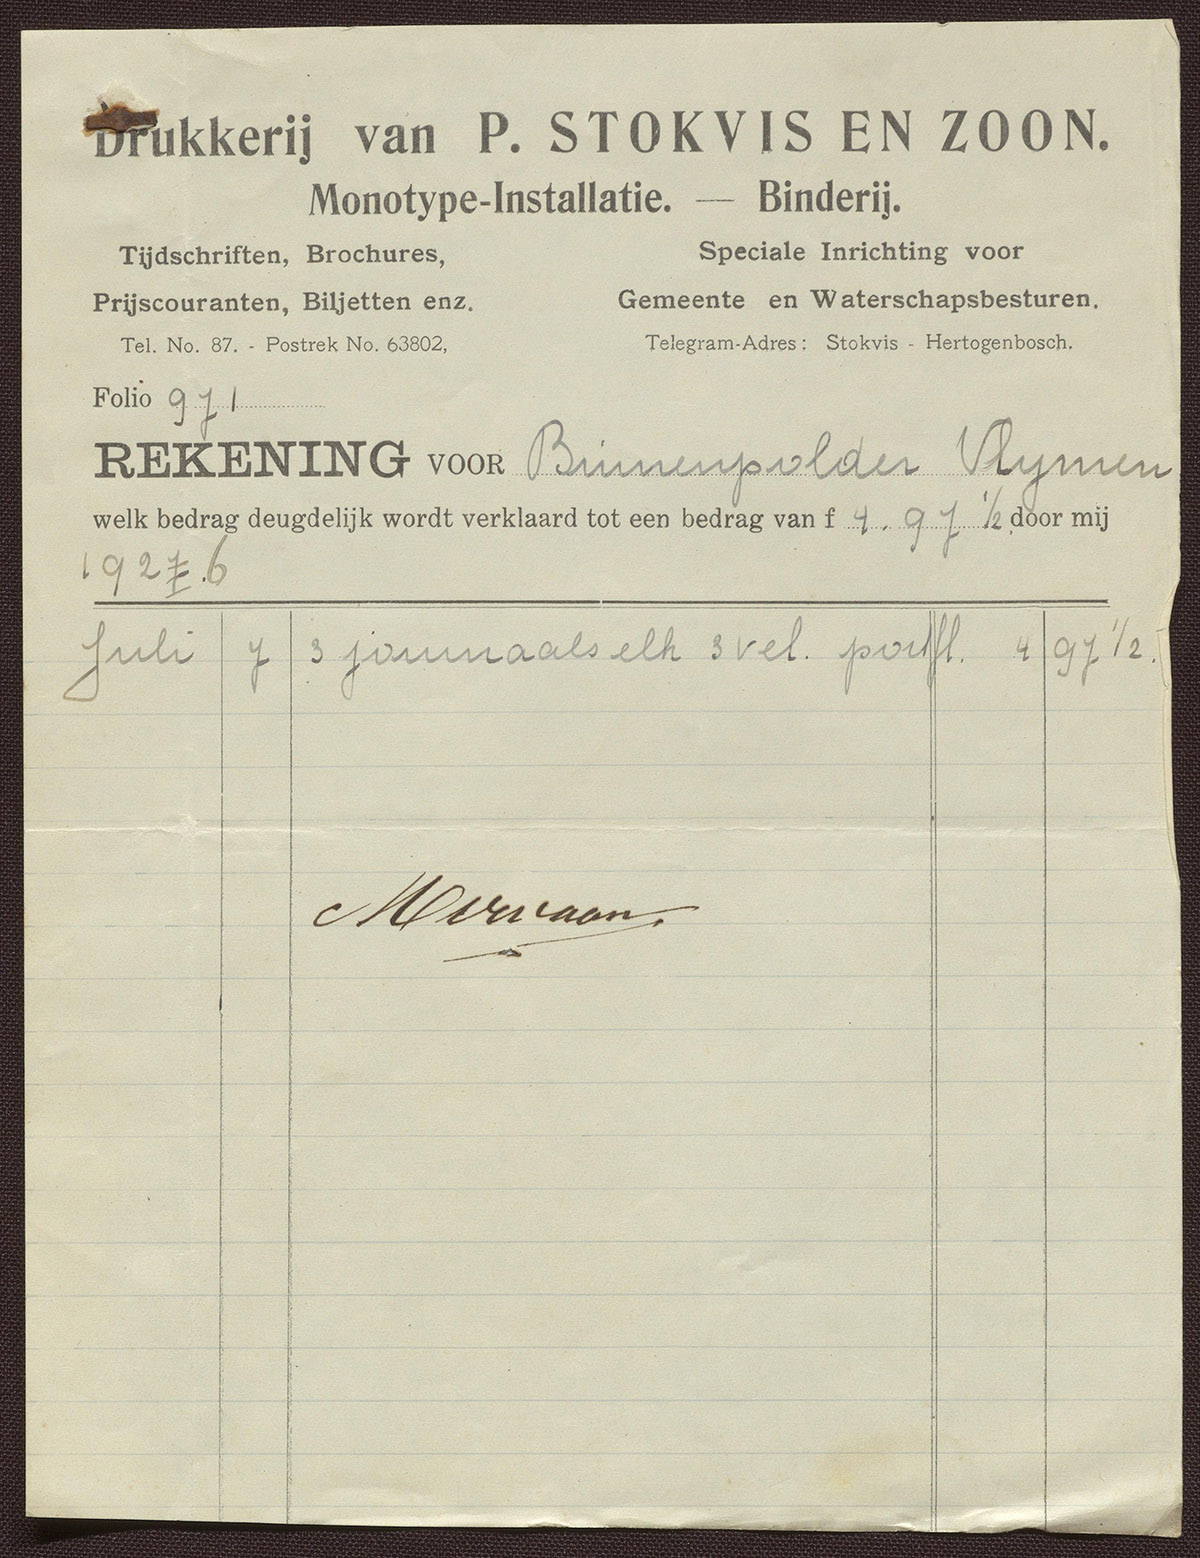 Drukkerij van P. STOKVIS EN ZOON.
Monotype-Installatie. — Binderij.
Tijdschriften, Brochures,
Prijscouranten, Biljetten enz.
Tel. No. 87. - Postrek No. 63802,
Speciale Inrichting voor
Gemeente en Waterschapsbesturen.
Telegram-Adres: Stokvis - Hertogenbosch.
Folio 971
REKENING VOOR Binnenpolder Vlymen
welk bedrag deugdelijk wordt verklaard tot een bedrag van f 4.97 1/2 door mij
1927.6
Juli 7 3 journaals elk 3 vel. port fl. 4 97 1/2.